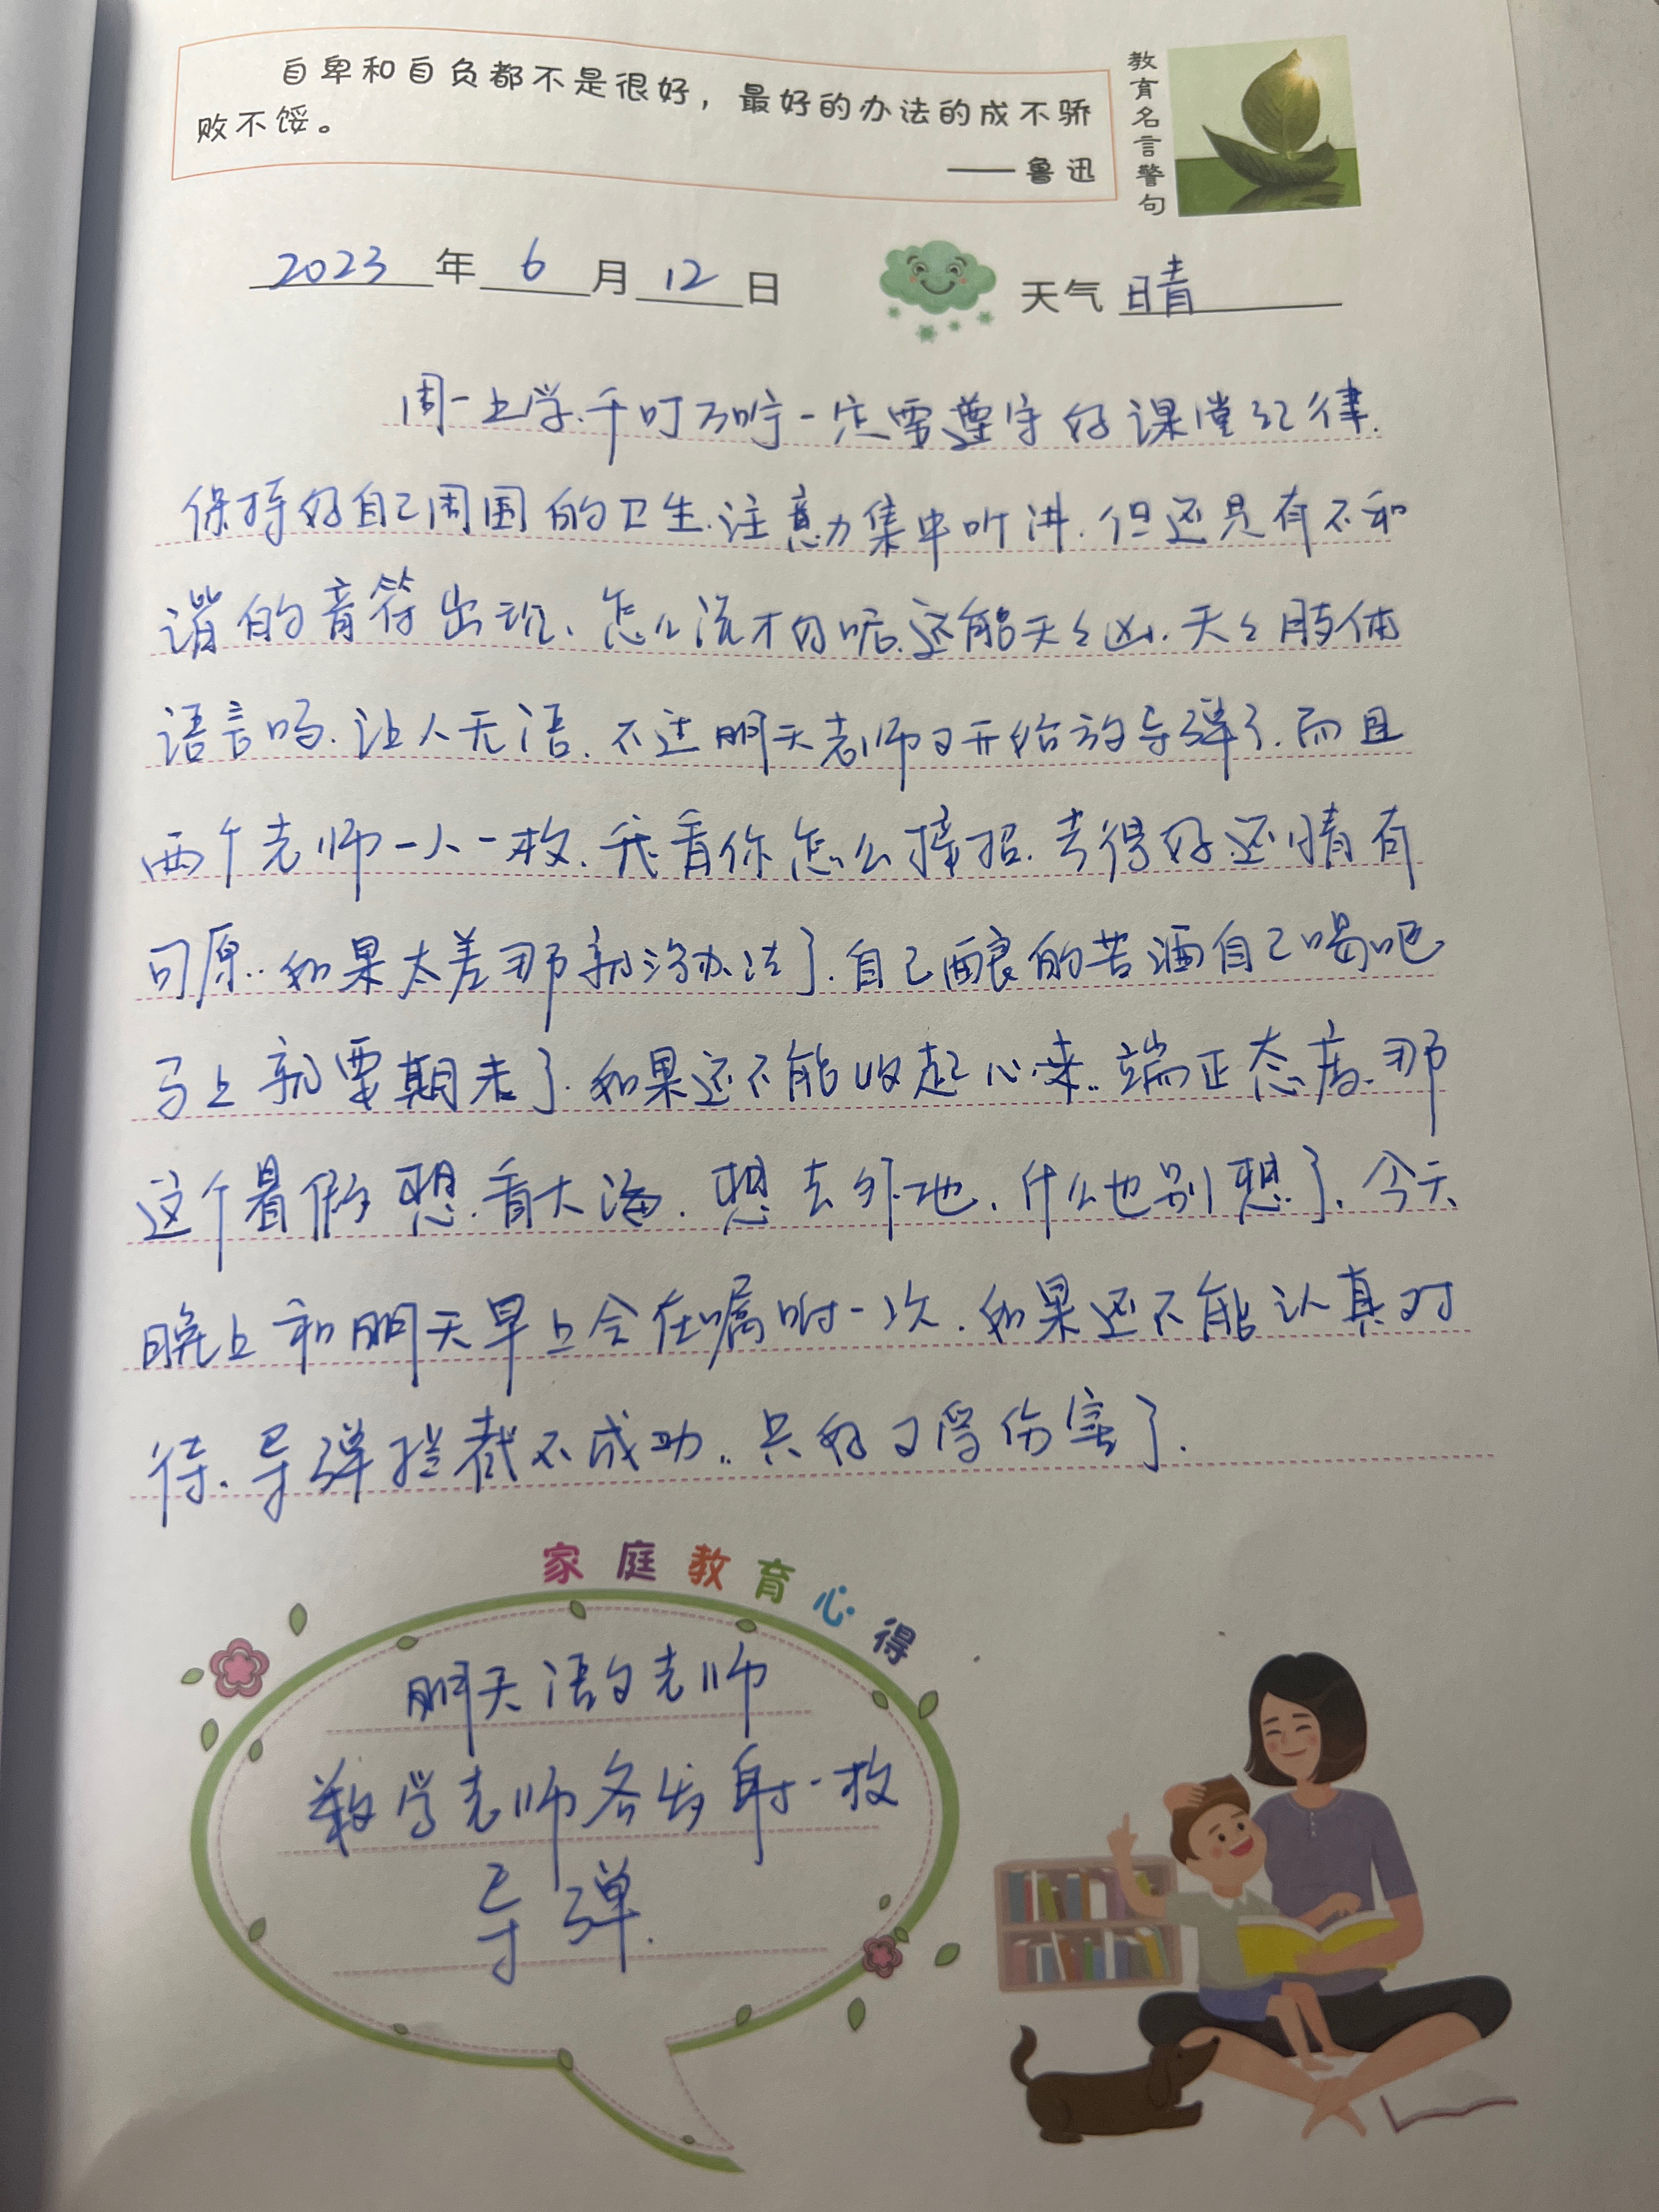 自卑和自负都不是很好，最好的办法的成不骄
败不馁。
——鲁迅
教育名言警句
2023年6月12日 天气 晴
周一上学.千叮万咛一定需遵守好课堂纪律.
保持好自己周围的卫生.注意力集中听讲.但还是有不和
谐的音符出现、怎么说才好呢.还能天天凶.天天肢体
语言吗.让人无语.不过明天老师又开始放导弹了.而且
两个老师一人一枚.我看你怎么接招.考得好还情有
可原..如果太差那就没办法了.自己酿的苦酒自己喝吧
马上就要期末了.如果还不能收起心来..端正态度.那
这个暑假想.看大海.想去外地.什么也别想了.今天
晚上和明天早上会在嘱咐一次.如果还不能认真对
待.导弹拦截不成功..只好又受伤害了.
家庭教育心得
明天语文老师
数学老师各发射一枚
导弹.